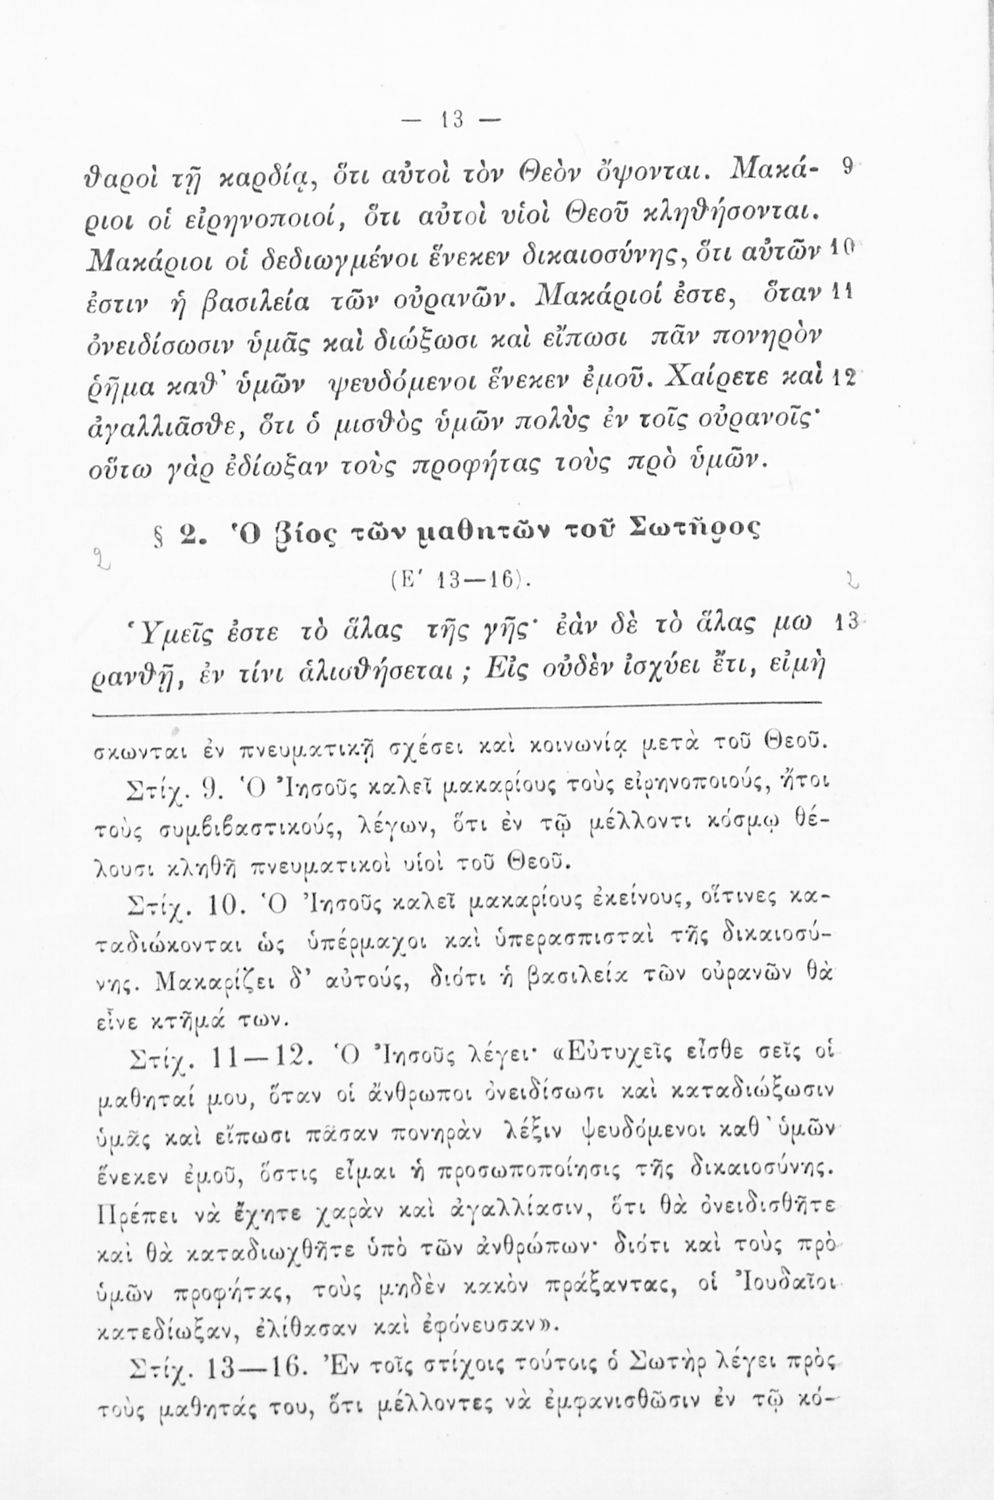 — 13 —
θαροὶ τῇ καρδίᾳ, ὅτι αὐτοὶ τὸν Θεὸν ὄψονται. Μακά- 9
ριοι οἱ εἰρηνοποιοί, ὅτι αὐτοὶ υἱοὶ Θεοῦ κληθήσονται.
Μακάριοι οἱ δεδιωγμένοι ἕνεκεν δικαιοσύνης, ὅτι αὐτῶν 10
ἐστιν ἡ βασιλεία τῶν οὐρανῶν. Μακάριοί ἐστε, ὅταν 11
ὀνειδίσωσιν ὑμᾶς καὶ διώξωσι καὶ εἴπωσι πᾶν πονηρὸν
ῥῆμα καθ' ὑμῶν ψευδόμενοι ἕνεκεν ἐμοῦ. Χαίρετε καὶ 12
ἀγαλλιᾶσθε, ὅτι ὁ μισθὸς ὑμῶν πολὺς ἐν τοῖς οὐρανοῖς·
οὕτω γὰρ ἐδίωξαν τοὺς προφήτας τοὺς πρὸ ὑμῶν.
§ 2. Ὁ βίος τῶν μαθητῶν τοῦ Σωτῆρος
2
(Ε' 13—16).
2
Ὑμεῖς ἐστε τὸ ἅλας τῆς γῆς· ἐὰν δὲ τὸ ἅλας μω 13
ρανθῇ, ἐν τίνι ἁλισθήσεται ; Εἰς οὐδὲν ἰσχύει ἔτι, εἰμὴ
σκωνται ἐν πνευματικῇ σχέσει καὶ κοινωνίᾳ μετὰ τοῦ Θεοῦ.
Στίχ. 9. Ὁ Ἰησοῦς καλεῖ μακαρίους τοὺς εἰρηνοποιούς, ἤτοι
τοὺς συμβιβαστικούς, λέγων, ὅτι ἐν τῷ μέλλοντι κόσμῳ θέ-
λουσι κληθῆ πνευματικοὶ υἱοὶ τοῦ Θεοῦ.
Στίχ. 10. Ὁ Ἰησοῦς καλεῖ μακαρίους ἐκείνους, οἵτινες κα-
ταδιώκονται ὡς ὑπέρμαχοι καὶ ὑπερασπισταὶ τῆς δικαιοσύ-
νης. Μακαρίζει δ' αὐτούς, διότι ἡ βασιλεία τῶν οὐρανῶν θὰ
εἶνε κτῆμά των.
Στίχ. 11—12. Ὁ Ἰησοῦς λέγει· «Εὐτυχεῖς εἶσθε σεῖς οἱ
μαθηταί μου, ὅταν οἱ ἄνθρωποι ὀνειδίσωσι καὶ καταδιώξωσιν
ὑμᾶς καὶ εἴπωσι πᾶσαν πονηρὰν λέξιν ψευδόμενοι καθ' ὑμῶν
ἕνεκεν ἐμοῦ, ὅστις εἶμαι ἡ προσωποποίησις τῆς δικαιοσύνης.
Πρέπει νὰ ἔχητε χαρὰν καὶ ἀγαλλίασιν, ὅτι θὰ ὀνειδισθῆτε
καὶ θὰ καταδιωχθῆτε ὑπὸ τῶν ἀνθρώπων· διότι καὶ τοὺς πρὸ
ὑμῶν προφήτας, τοὺς μηδὲν κακὸν πράξαντας, οἱ Ἰουδαῖοι
κατεδίωξαν, ἐλίθασαν καὶ ἐφόνευσαν».
Στίχ. 13—16. Ἐν τοῖς στίχοις τούτοις ὁ Σωτὴρ λέγει πρὸς
τοὺς μαθητάς του, ὅτι μέλλοντες νὰ ἐμφανισθῶσιν ἐν τῷ κό-